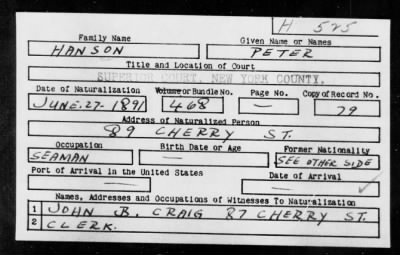 H 525
Family Name Given Name or Names
HANSON PETER
Title and Location of Court
SUPERIOR COURT, NEW YORK COUNTY.
Date of Naturalization Volume or Bundle No. Page No. Copy of Record No.
JUNE-27-1891 468 — 79
Address of Naturalized Person
89 CHERRY ST.
Occupation Birth Date or Age Former Nationality
SEAMAN — SEE OTHER SIDE
Port of Arrival in the United States Date of Arrival
— —
Names, Addresses and Occupations of Witnesses To Naturalization
1 JOHN B. CRAIG 87 CHERRY ST.
2 CLERK.